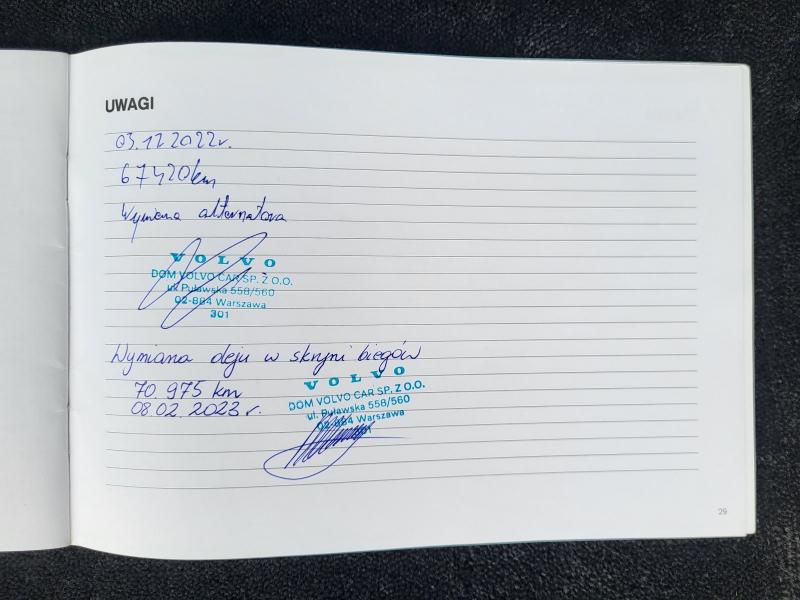 UWAGI
03.12.2022r.
67420km
Wymiana alternatora
VOLVO
DOM VOLVO CAR SP. Z O.O.
ul. Puławska 558/560
02-884 Warszawa
301
Wymiana oleju w skrzyni biegów
70 975 km
08.02.2023 r.
VOLVO
DOM VOLVO CAR SP. Z O.O.
ul. Puławska 558/560
02-884 Warszawa
29